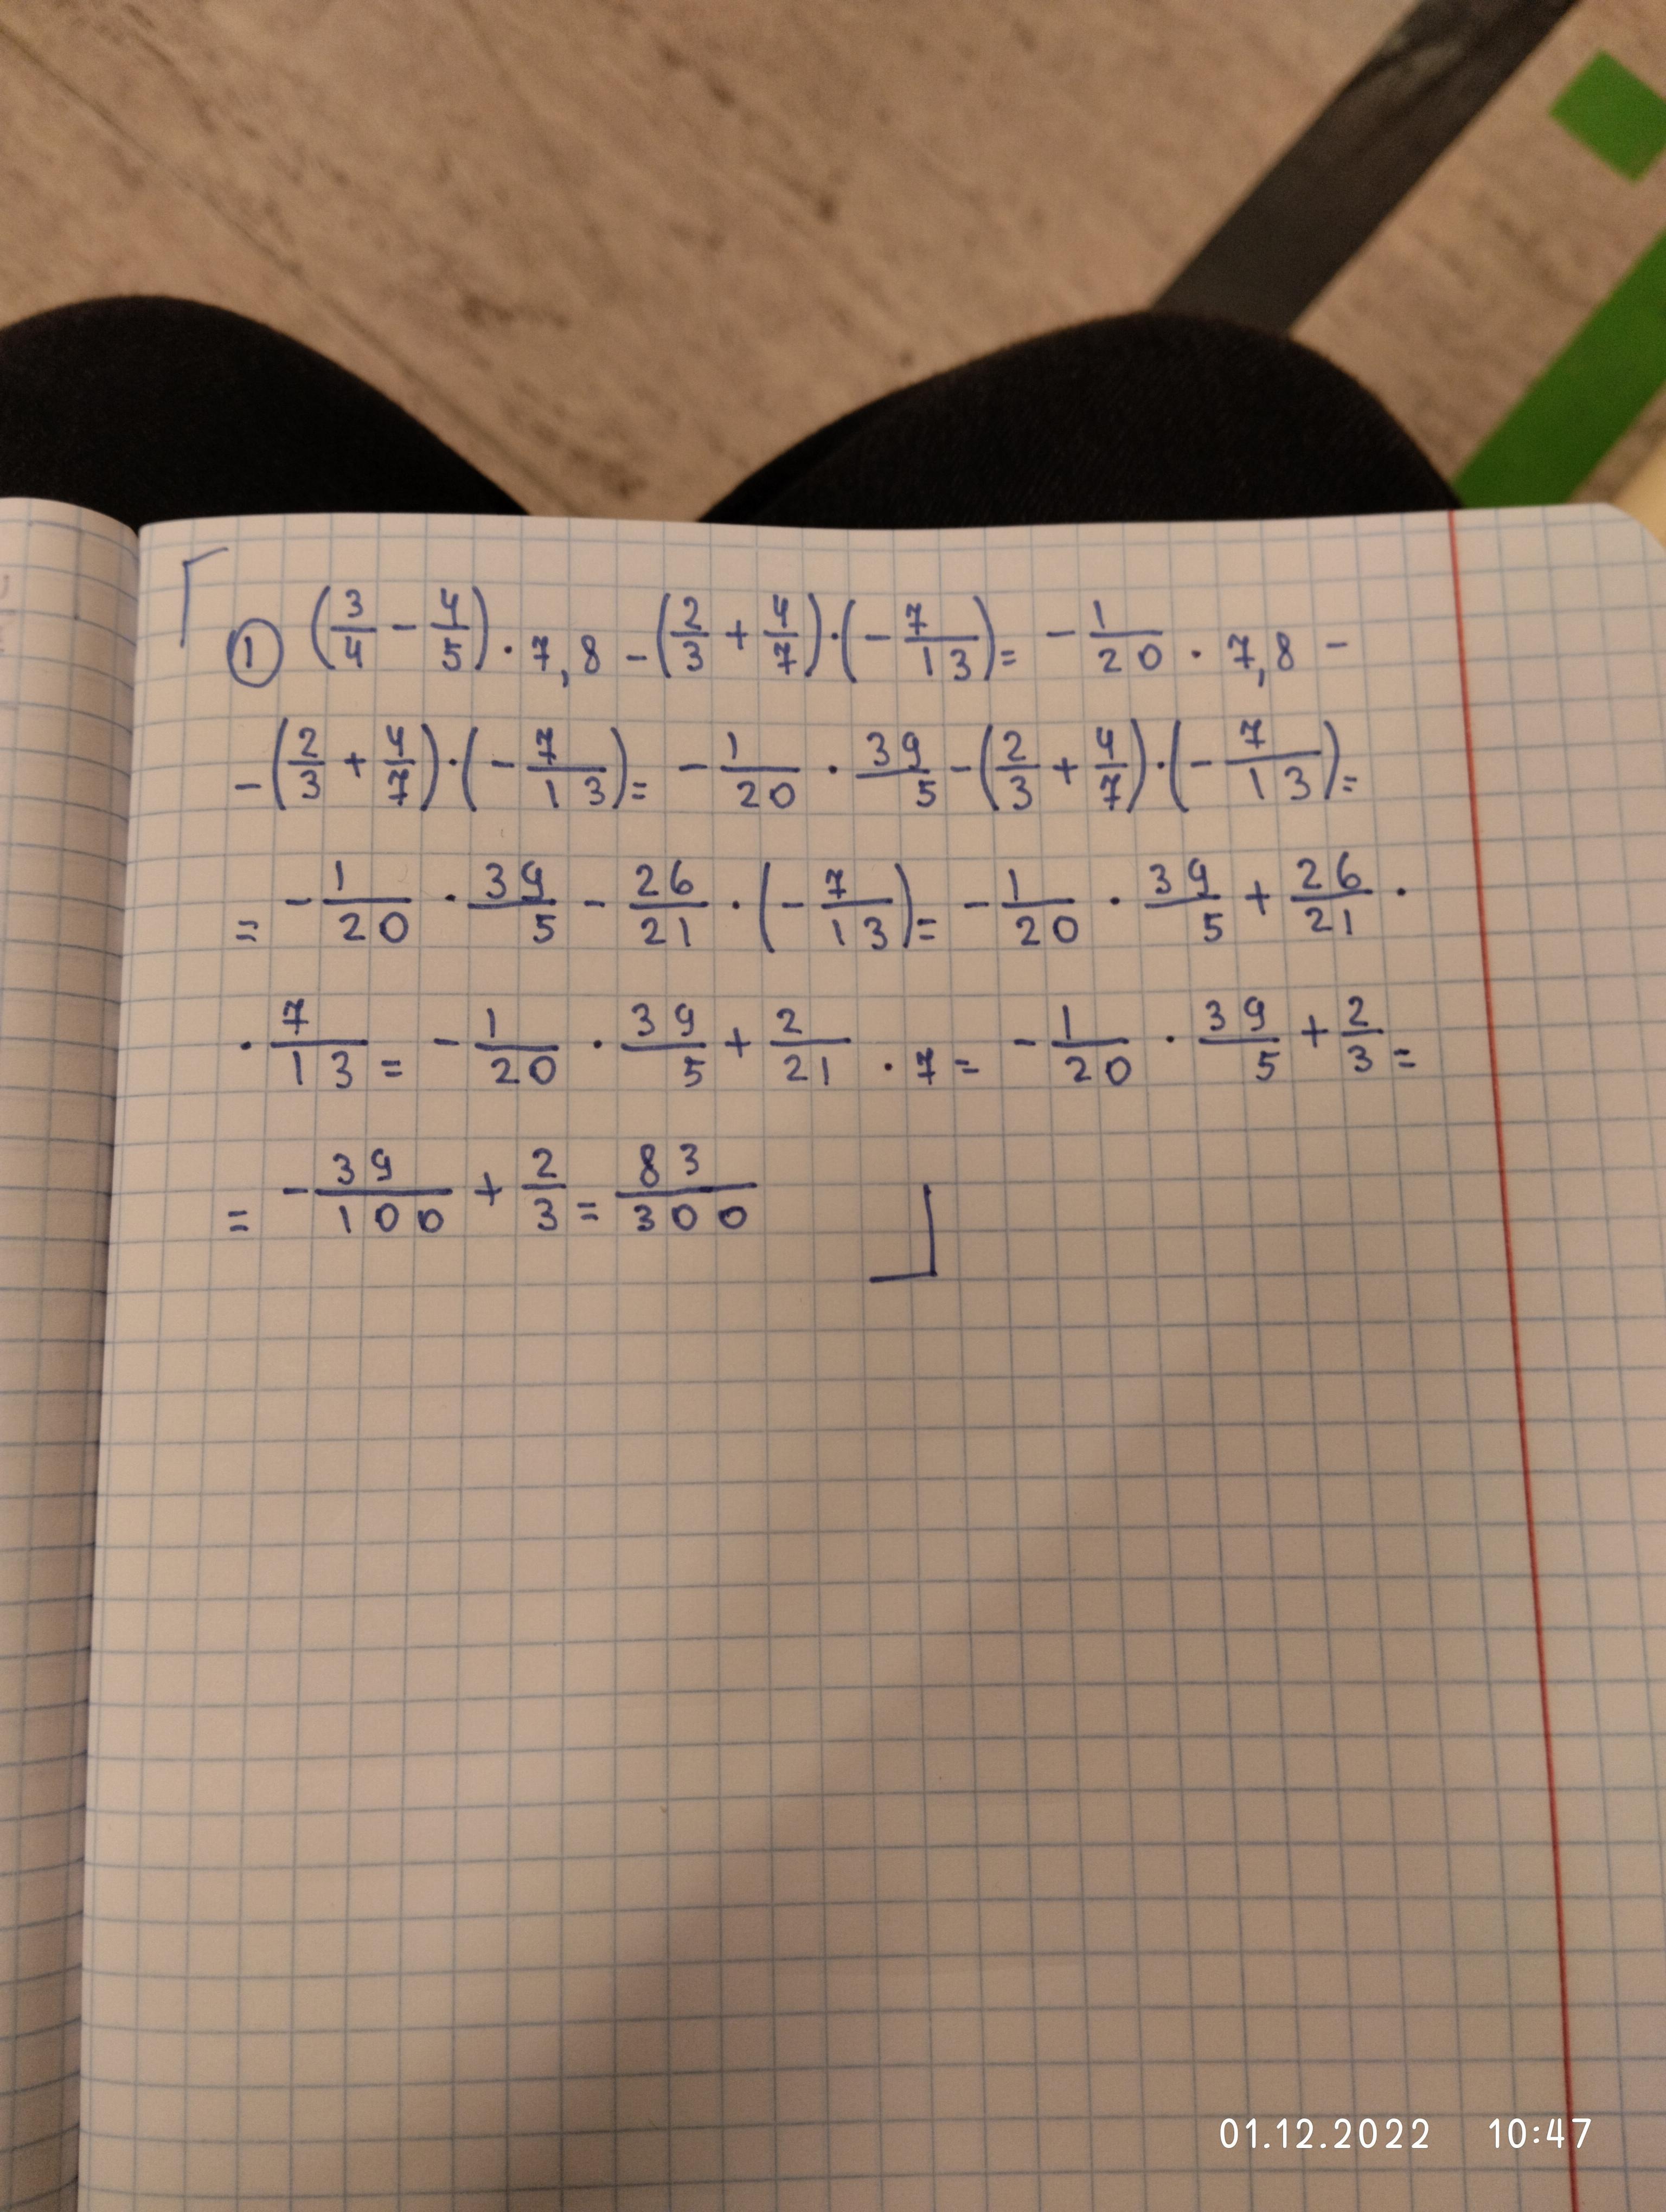 ① (3/4 - 4/5) · 7,8 - (2/3 + 4/7) · (- 7/13) = - 1/20 · 7,8 -
- (2/3 + 4/7) · (- 7/13) = - 1/20 · 39/5 - (2/3 + 4/7) · (- 7/13) =
= - 1/20 · 39/5 - 26/21 · (- 7/13) = - 1/20 · 39/5 + 26/21 ·
· 7/13 = - 1/20 · 39/5 + 2/21 · 7 = - 1/20 · 39/5 + 2/3 =
= - 39/100 + 2/3 = 83/300
01.12.2022 10:47